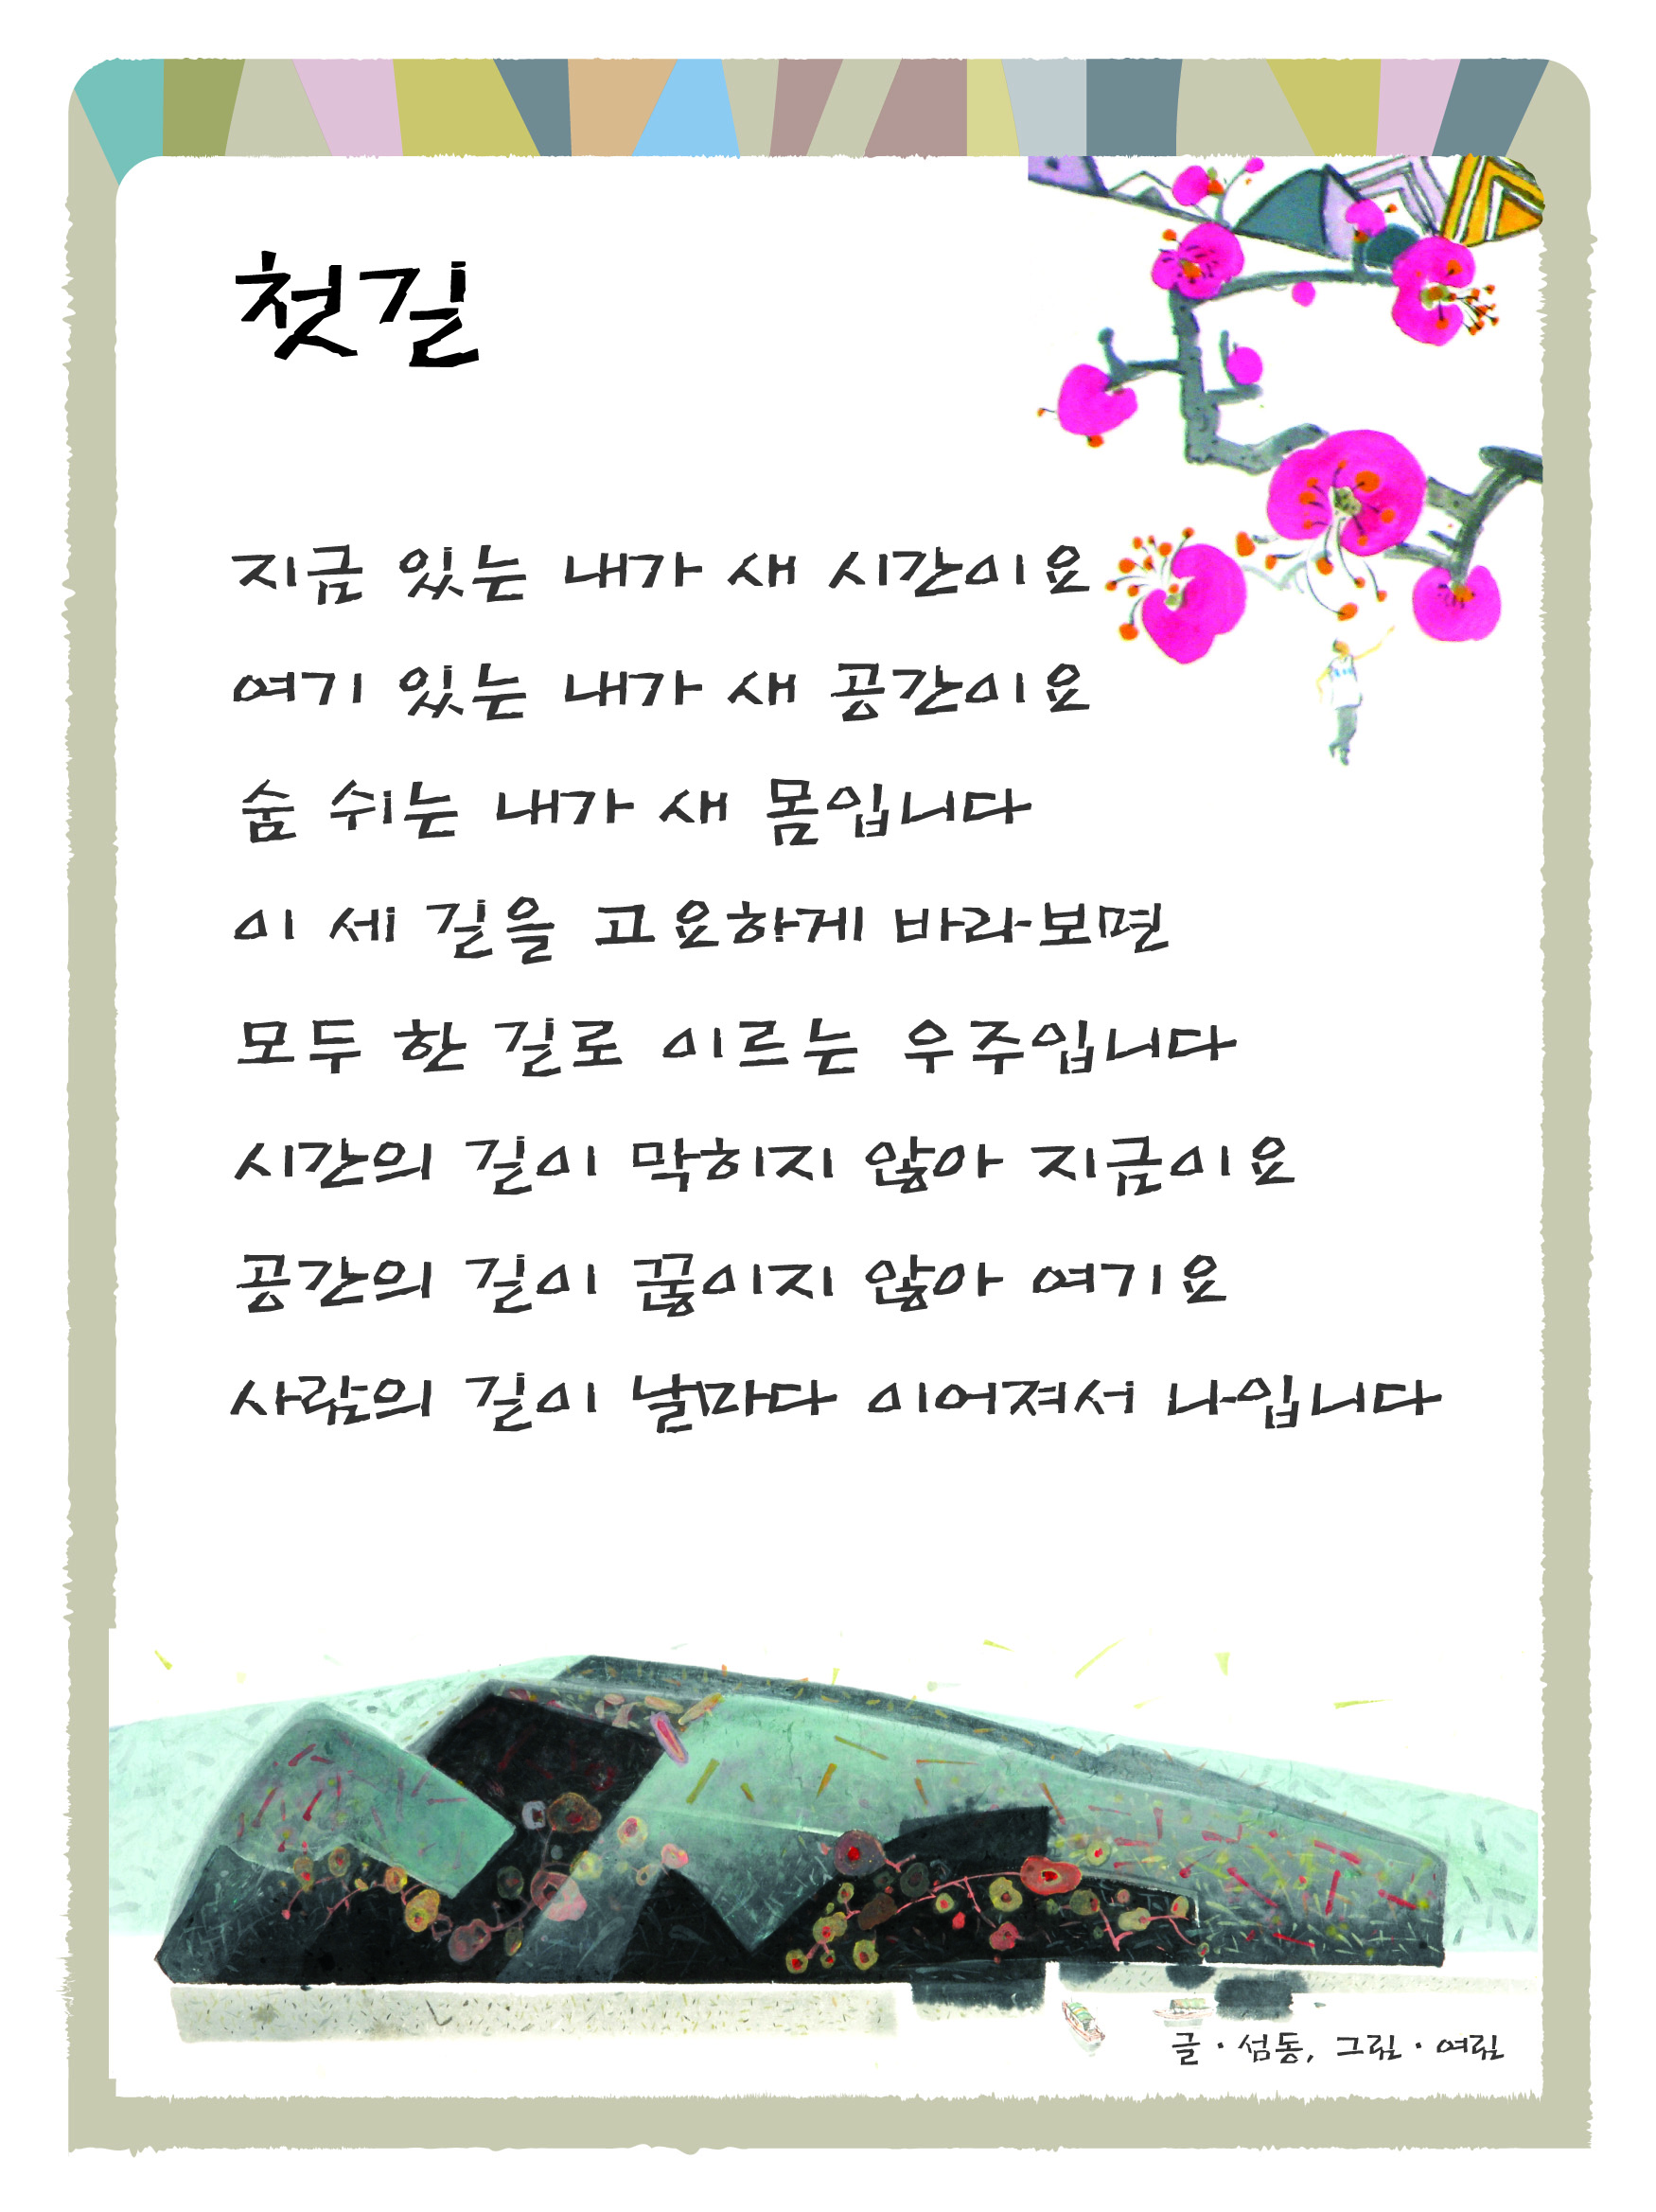 첫길
지금 있는 내가 새 시간이요
여기 있는 내가 새 공간이요
숨 쉬는 내가 새 몸입니다
이 세 길을 고요하게 바라보면
모두 한 길로 이르는 우주입니다
시간의 길이 막히지 않아 지금이요
공간의 길이 끊이지 않아 여기요
사람의 길이 날마다 이어져서 나입니다
글·섬동, 그림·여림